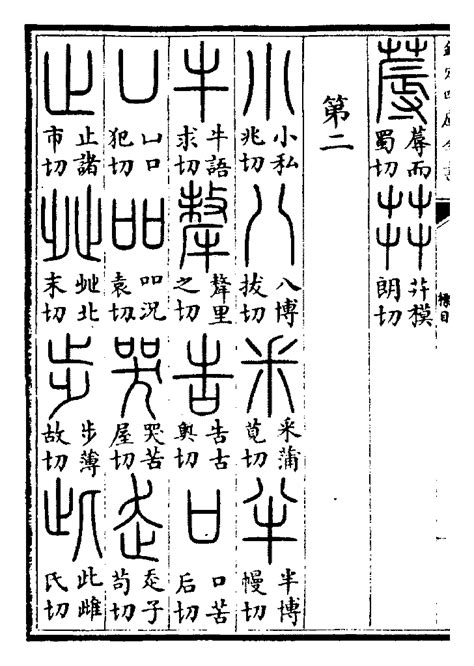 欽定四庫全書
標目
蓐 蓐而蜀切 茻 茻模朗切
第二
小 小私兆切 八 八博拔切 釆 釆蒲莧切 半 半博幔切
牛 牛語求切 犛 犛里之切 告 告古奥切 口 口苦后切
凵 凵口犯切 吅 吅况袁切 哭 哭苦屋切 走 赱子茍切
止 止諸市切 癶 癶北末切 步 步薄故切 此 此雌氏切